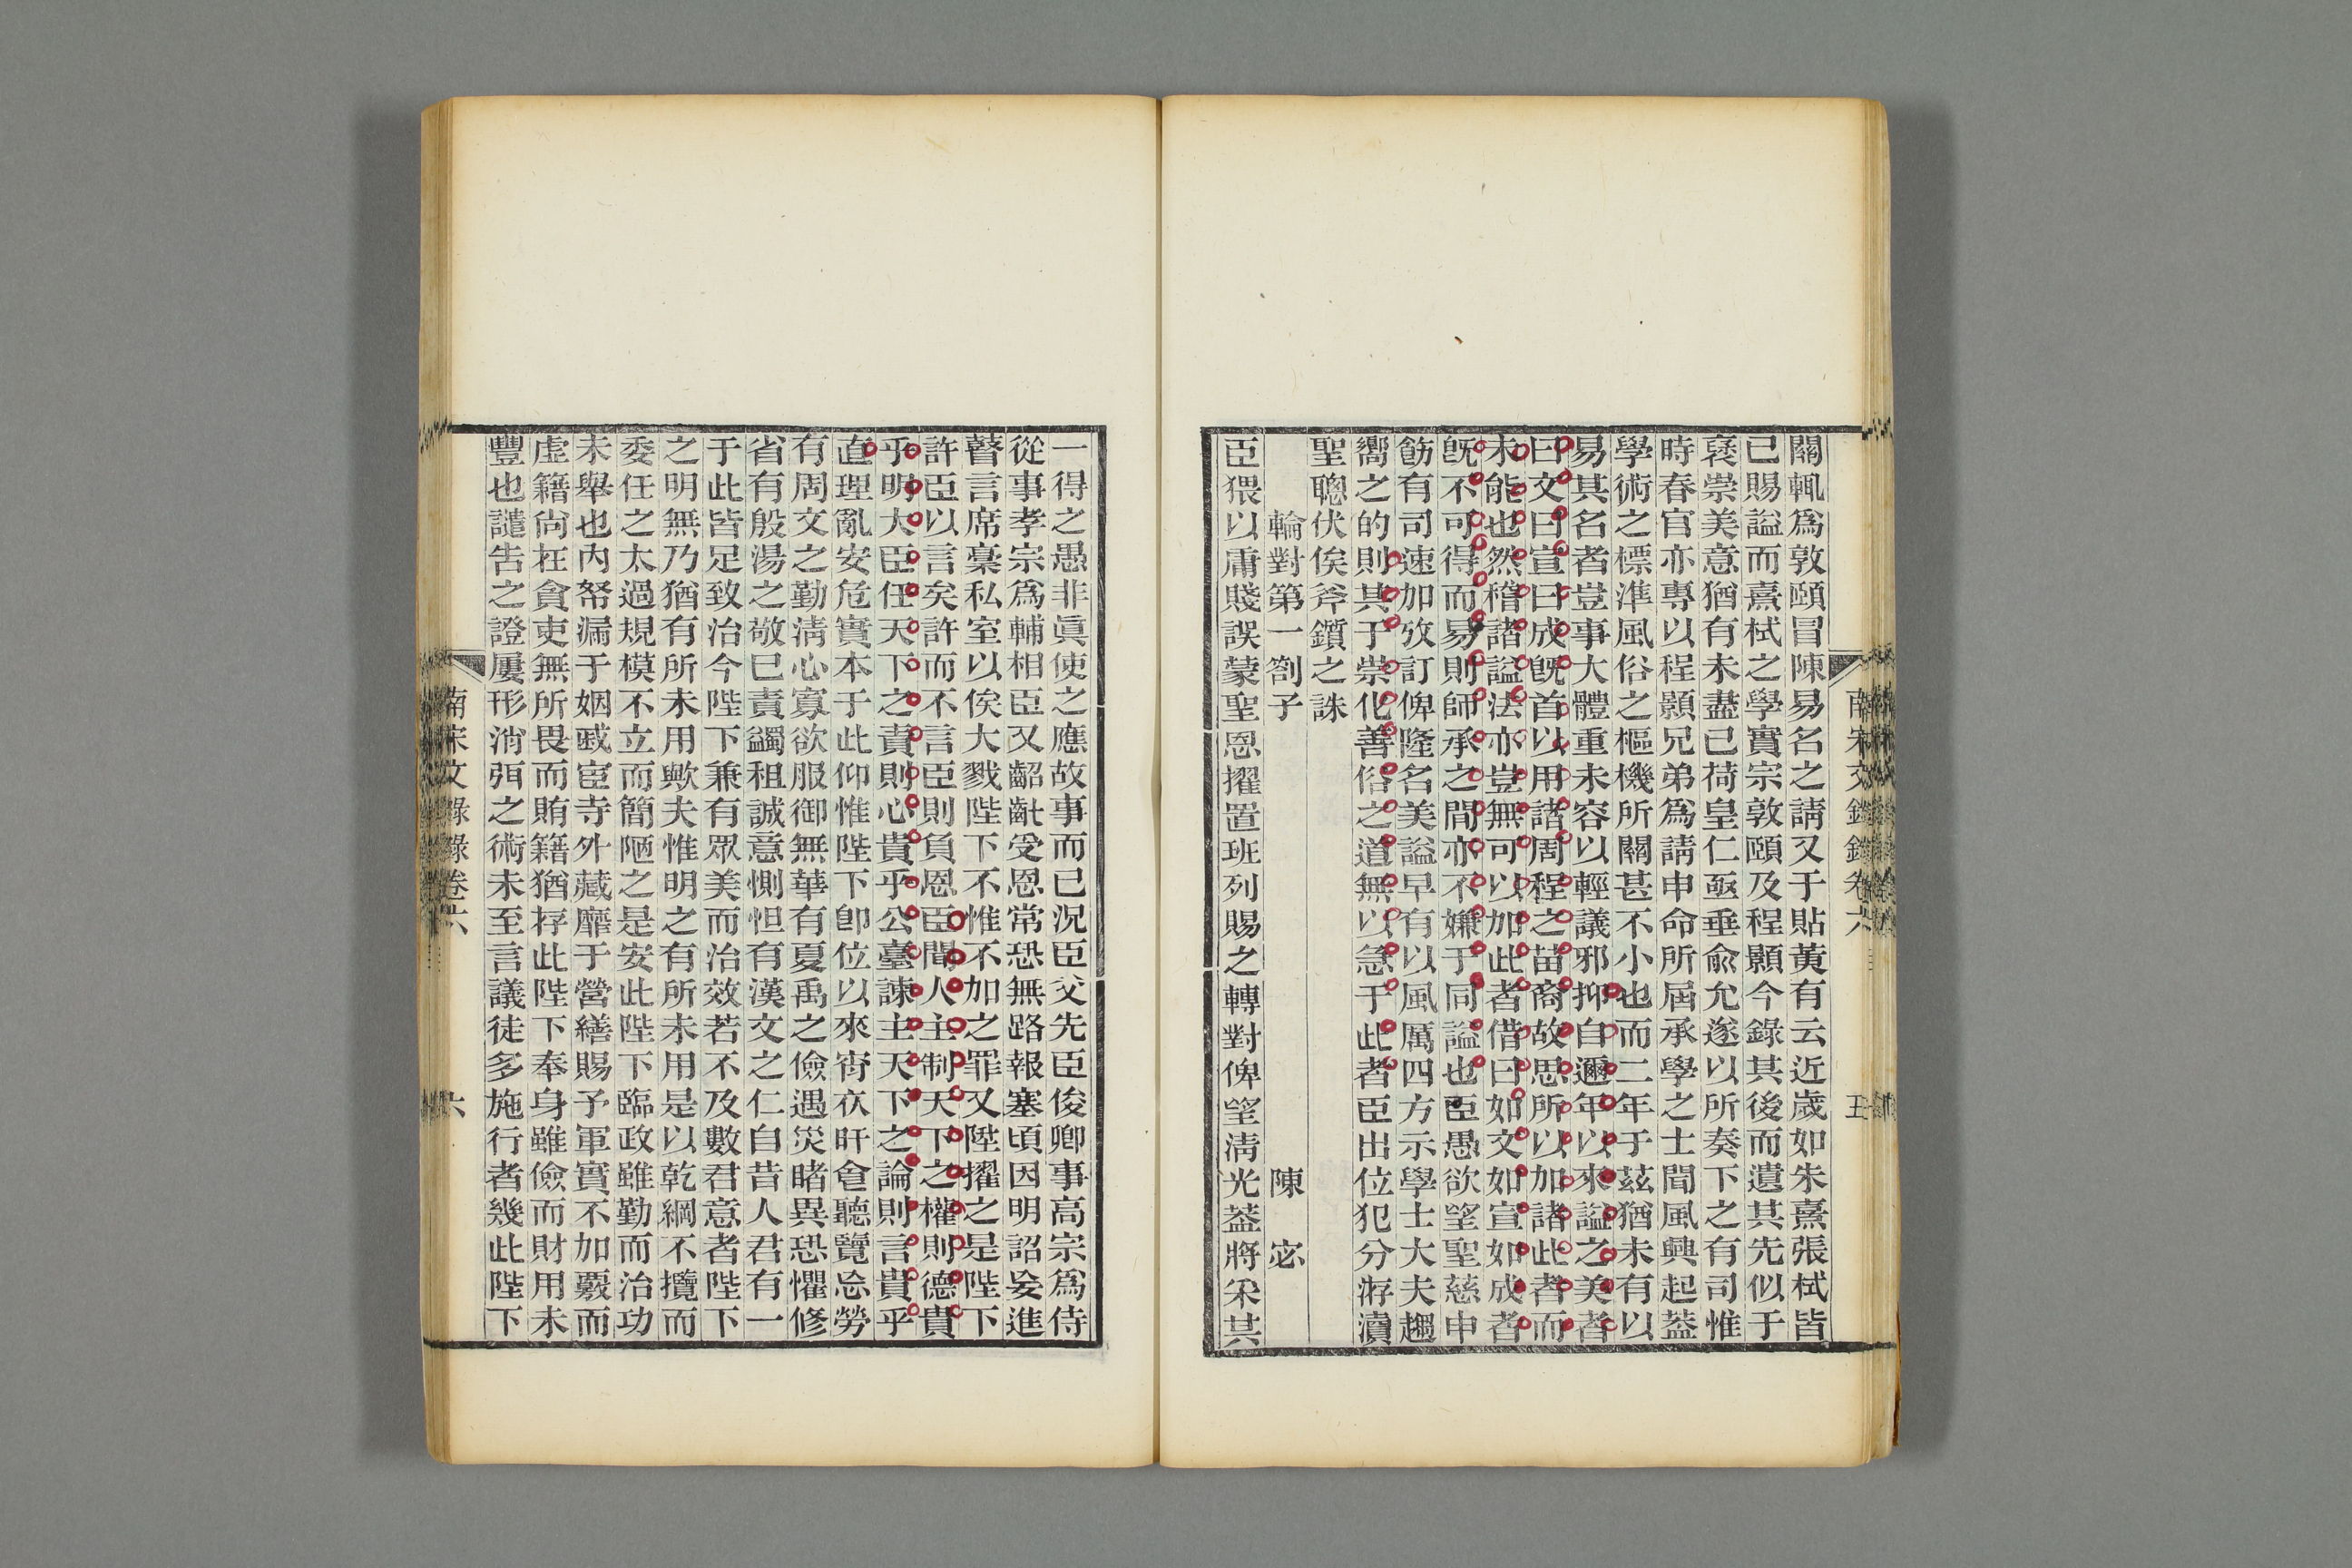 南宋文錄錄卷六
五
關輒爲敦頤冒陳易名之請又于貼黃有云近歲如朱熹張栻皆
已賜謚而熹栻之學實宗敦頤及程顥今錄其後而遺其先似于
襃崇美意猶有未盡已荷皇仁亟垂兪允遂以所奏下之有司惟
時春官亦專以程顥兄弟爲請申命所屆承學之士聞風興起葢
學術之標準風俗之樞機所關甚不小也而二年于茲猶未有以
易其名者豈事大體重未容以輕議邪抑自邇年以來謚之美者
曰文曰宣曰成旣首以用諸周程之苗裔故思所以加諸此者而
未能也然稽諸謚法亦豈無可以加此者借曰如文如宣如成者
旣不可得而易則師承之間亦不嫌于同謚也臣愚欲望聖慈申
飭有司速加攷訂俾隆名美謚早有以風厲四方示學士大夫趨
嚮之的則其于崇化善俗之道無以急于此者臣出位犯分洊瀆
聖聰伏俟斧鑕之誅
輪對第一劄子 陳宓
臣猥以庸賤誤蒙聖恩擢置班列賜之轉對俾望淸光葢將采其
一得之愚非眞使之應故事而已況臣父先臣俊卿事高宗爲侍
從事孝宗爲輔相臣又齠齔受恩常恐無路報塞頃因明詔妄進
瞽言席稾私室以俟大戮陛下不惟不加之罪又陞擢之是陛下
許臣以言矣許而不言臣則負恩臣聞人主制天下之權則德貴
乎明大臣任天下之責則心貴乎公臺諫主天下之論則言貴乎
直理亂安危實本于此仰惟陛下卽位以來宵衣旰食聽覽忘勞
有周文之勤淸心寡欲服御無華有夏禹之儉遇災睹異恐懼修
省有殷湯之敬已責蠲租誠意惻怛有漢文之仁自昔人君有一
于此皆足致治今陛下兼有眾美而治效若不及數君意者陛下
之明無乃猶有所未用歟夫惟明之有所未用是以乾綱不攬而
委任之太過規模不立而簡陋之是安此陛下臨政雖勤而治功
未舉也內帑漏于姻戚宦寺外藏靡于營繕賜予軍實不加覈而
虛籍尙在貪吏無所畏而賄籍猶存此陛下奉身雖儉而財用未
豐也譴告之證屢形消弭之術未至言議徒多施行者幾此陛下
南宋文錄錄卷六
六